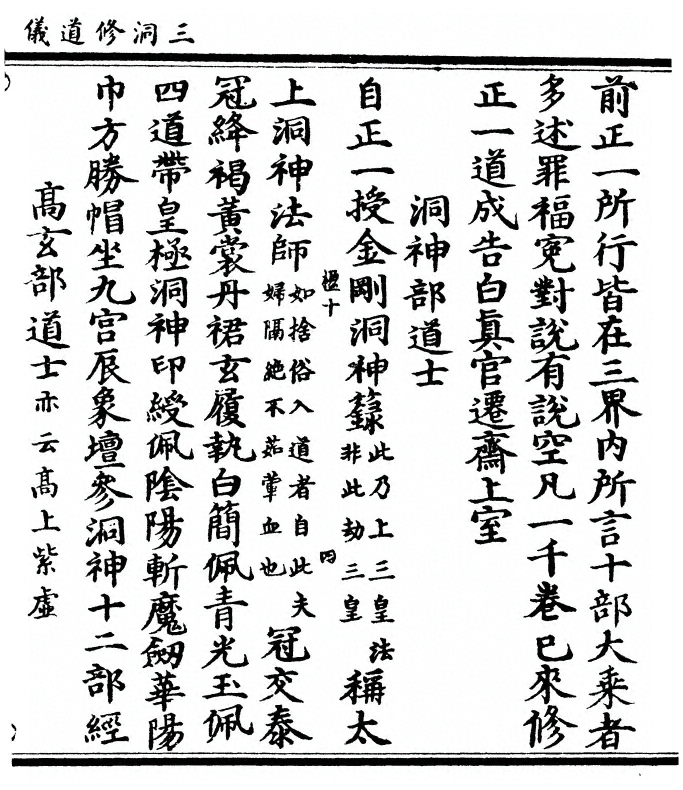 三洞修道儀
前正一所行皆在三界內所言十部大乘者
多述罪福寃對說有說空凡一千卷已來修
正一道成告白眞官遷齋上室
洞神部道士
自正一授金剛洞神籙此乃上三皇法非此劫三皇稱太
楹十
四
上洞神法師如捨俗入道者自此夫婦隔絶不茹葷血也冠交泰
冠絳褐黃裳丹裙玄履執白簡佩青光玉佩
四道帶皇極洞神印綬佩陰陽斬魔劒華陽
巾方勝帽坐九宮辰象壇參洞神十二部經
髙玄部道士亦云髙上紫虛